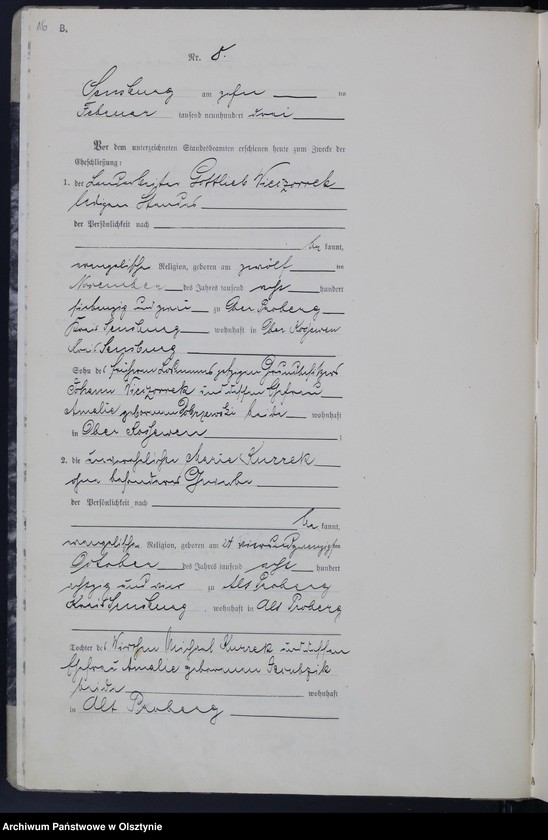 116 B.
Nr. 8.
Sensburg am zehn ten
Februar tausend neunhundert drei
Vor dem unterzeichneten Standesbeamten erschienen heute zum Zwecke der
Eheschließung:
1. der Gottlieb Wieczorrek
ledigen Standes
der Persönlichkeit nach
be kannt,
evangelischer Religion, geboren am zwölf ten
November des Jahres tausend acht hundert
siebenzig und zwei zu Ober Proberg
Kreis Sensburg wohnhaft in Ober Kossewen
Kreis Sensburg
Sohn des früheren jetzigen Grundbesitzers
Johann Wieczorrek und dessen Ehefrau
Amalie geborenen beide wohnhaft
in Ober Kossewen ;
2. die unverehelichte Marie Kurrek
ohne besonderes Gewerbe
der Persönlichkeit nach
be kannt,
evangelischer Religion, geboren am 24 vierundzwanzigsten
October des Jahres tausend acht hundert
achtzig und vier zu Alt Proberg
Kreis Sensburg , wohnhaft in Alt Proberg
Tochter des Wirthen Michael Kurrek und dessen
Ehefrau Amalie geborenen
beide wohnhaft
in Alt Proberg
Archiwum Państwowe w Olsztynie